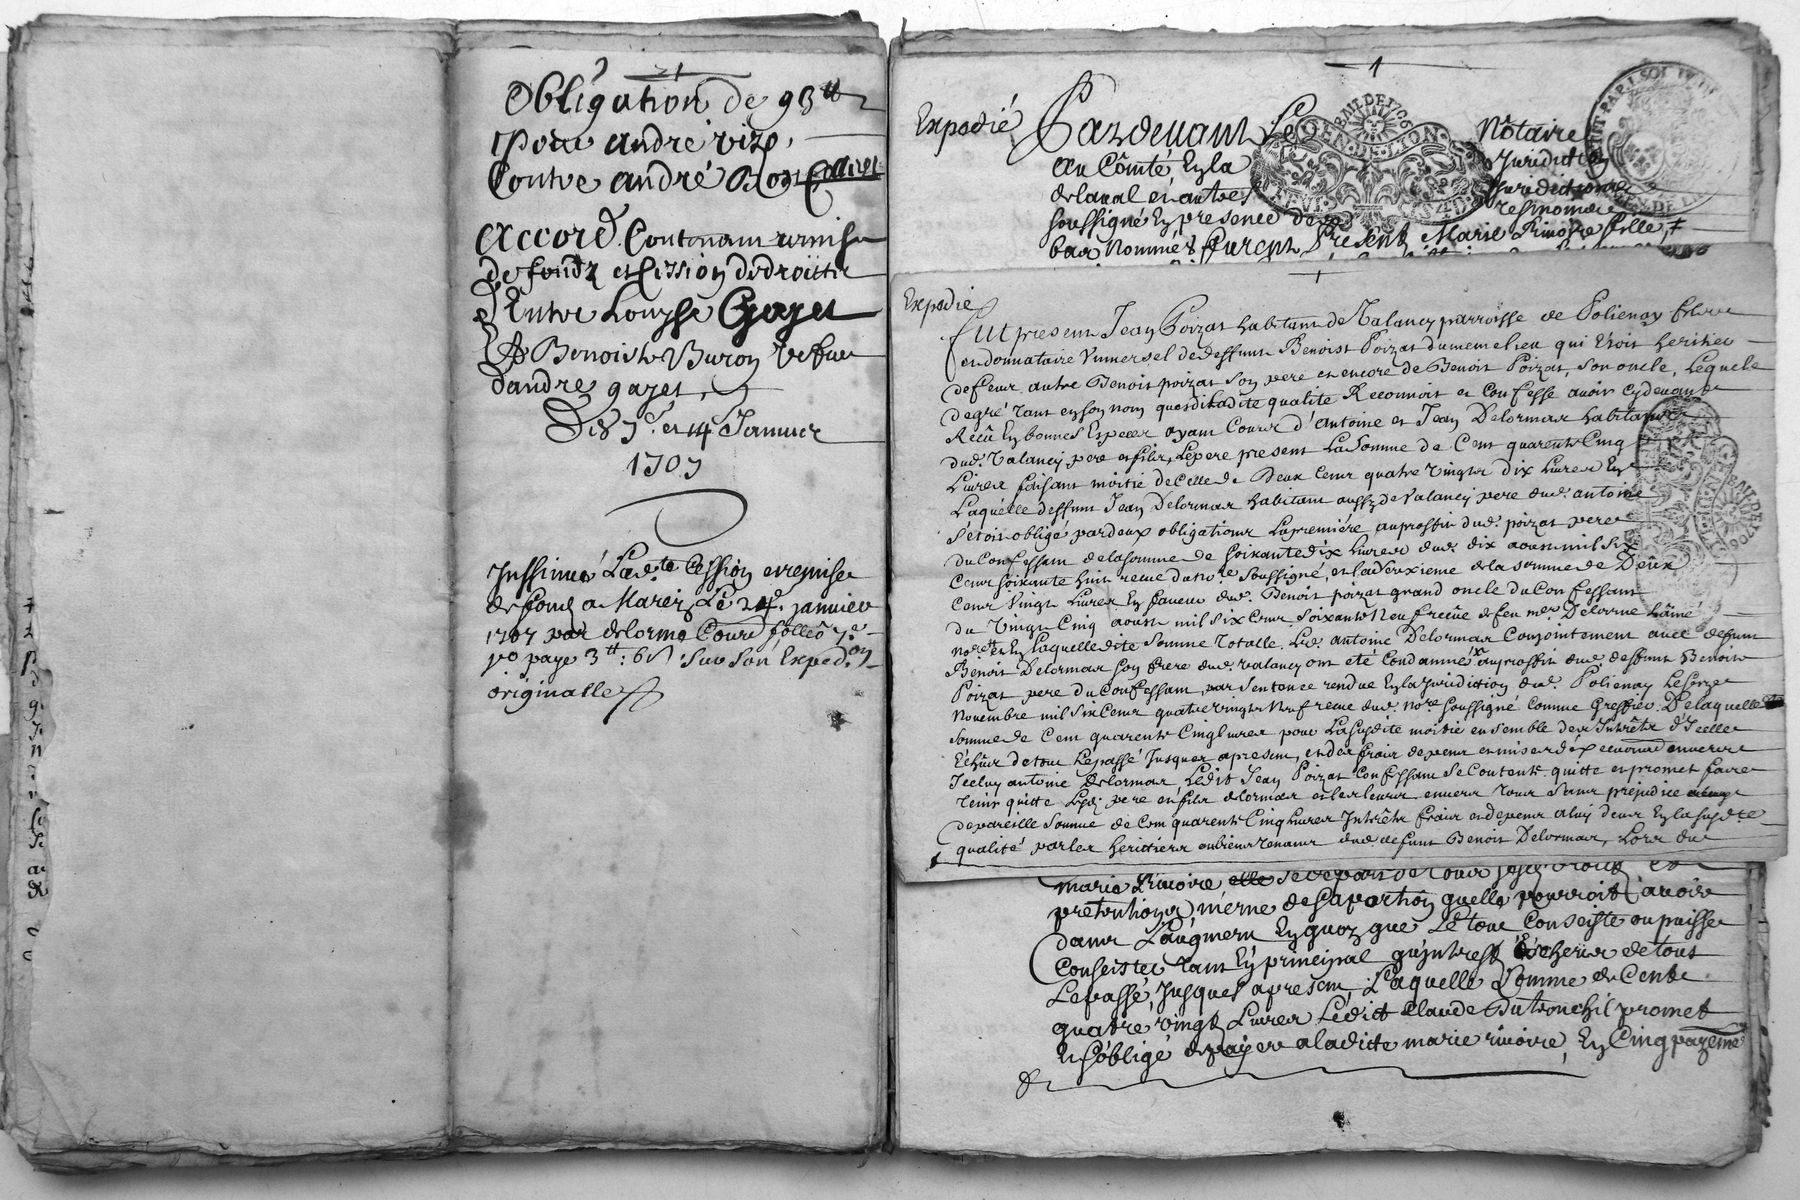 21
Obligation de 93 tt
Pour andré vizo
Contre andré
Accord Contenant remise
de fondz et Cession de droitz
Entre Louyse Gayet
Et Benoiste Buron vefue
dandre gayet,
Des 7e. et 14 Januier
1707
Jnssinué Lad.te Cession et remise
de fond a Le 24e. januier
1707 par delorme Couré folleo 7e
vo paye 3 tt : 6 s Sur Son Exped.on
originalle
1
Expedié
Pardeuant Le Notaire
Au Comté, Ez la Juridiction
delaual et autres Juridictions
soussigné Ez presence des tesmoins
bas Nommés furent Presentz Marie Riuoire fille
Expedié
fut present Jean Poizat habitant de Valancy parroisse de Polienay filz
et donnataire Vniuersel de deffunt Benoist Poizat du meme lieu qui étoit heritier
de feu autre Benoit poizat son pere et encore de Benoit Poizat, son oncle, Lequel
de gré tant en son nom quen ditte qualité Reconnoit et Confesse auoir cy deuant
Reçû En bonnes Especes ayant Cours d'Antoine et Jean Delormar habitants
dud. Valancy pere et filz, Le pere present La Somme de Cent quarente Cinq
Liures faisant moitié de Celle de Deux Cens quatre vingtz dix Liures En
Laquelle deffunt Jean Delormar habitant aussy de Valancy pere dud. antoine
s'étoit obligé par deux obligations La premiére au proffit dud. poizat pere
du Confessant de la somme de soixante dix Liures du dix aoust mil six
Cens soixante huit receue du no.re soussigné, et la deuxieme de la somme de Deux
Cens Vingt Liures En faueur dud. Benoit poizat grand oncle du Confessant
du Vingt Cinq aoust mil six Cens soixante Neuf receüe de feu m.er Delorme L'aîné
no.re et En Laquelle dite Somme Totalle Led. antoine Delormar Conjointement auec deffunt
Benoit Delormar son frere dud. valancy ont été Condamnéz au proffit dud. deffunt Benoit
Poizat pere du Confessant, par Sentence rendue En la Juridiction dud. Polienay Le seize
Nouembre mil six Cens quatre vingtz Neuf receue dud. no.re soussigné Comme Greffier. De laquelle
somme de Cent quarente Cinq liures pour La susdite moitié ensemble des Interêtz d'Jcelle
Echûs de tout Le passé Jusques a present, et des frais depens et mises
Jceluy antoine Delormar Ledit Jean Poizat Confessant se Contente quitte et promet faire
tenir quitte Lesd. pere et filz delormar et les leurs enuers tous sans prejudice
de pareille Somme de Cent quarente Cinq Liures Jnterêtz frais et depens a luy deus En la susd.te
qualité par les heritiers ou biens tenans dud. defunt Benoit Delormar, Lors du
marie Riuoire elle se depart de tous
pretentions meme de sa portion quelle pourroit auoir
dans L'augment En quoy que Le tout Conseiste ou puisse
Conseister tant En principal quintrest écheus de tout
Le passé, Jusques a present, Laquelle Somme de Cente
quatre vingt Liures Ledict Claude Dutronchil promet
et s'oblige de payer a laditte marie riuoire, En Cinq payeme